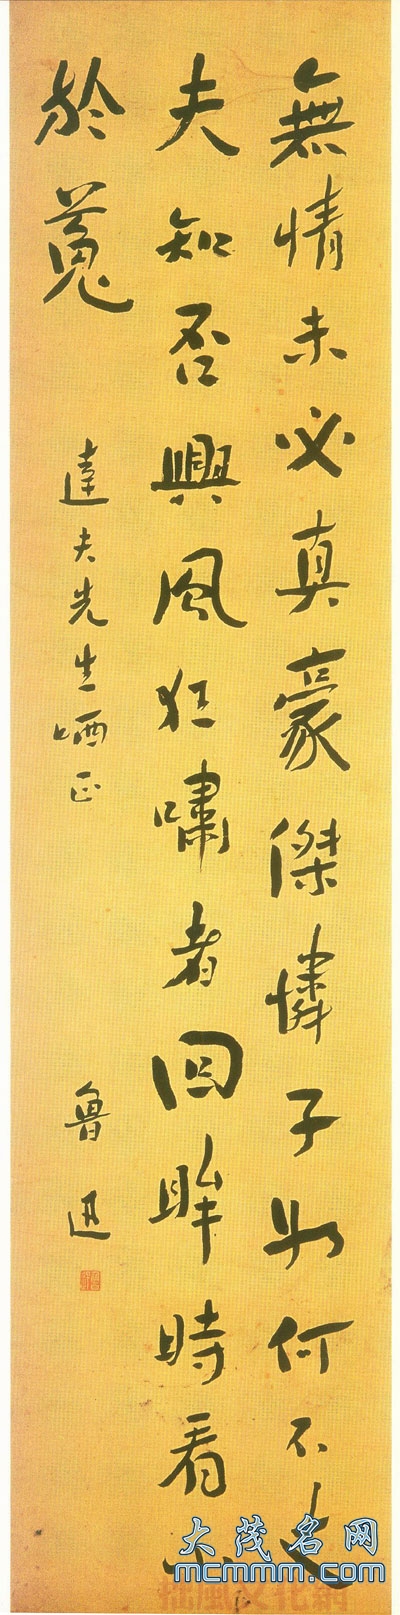 無情未必真豪傑憐子如何不丈
夫知否興風狂嘯者回眸時看小
於菟
達夫先生哂正
魯迅
大茂名网
mcmmm.com
拙風文化網